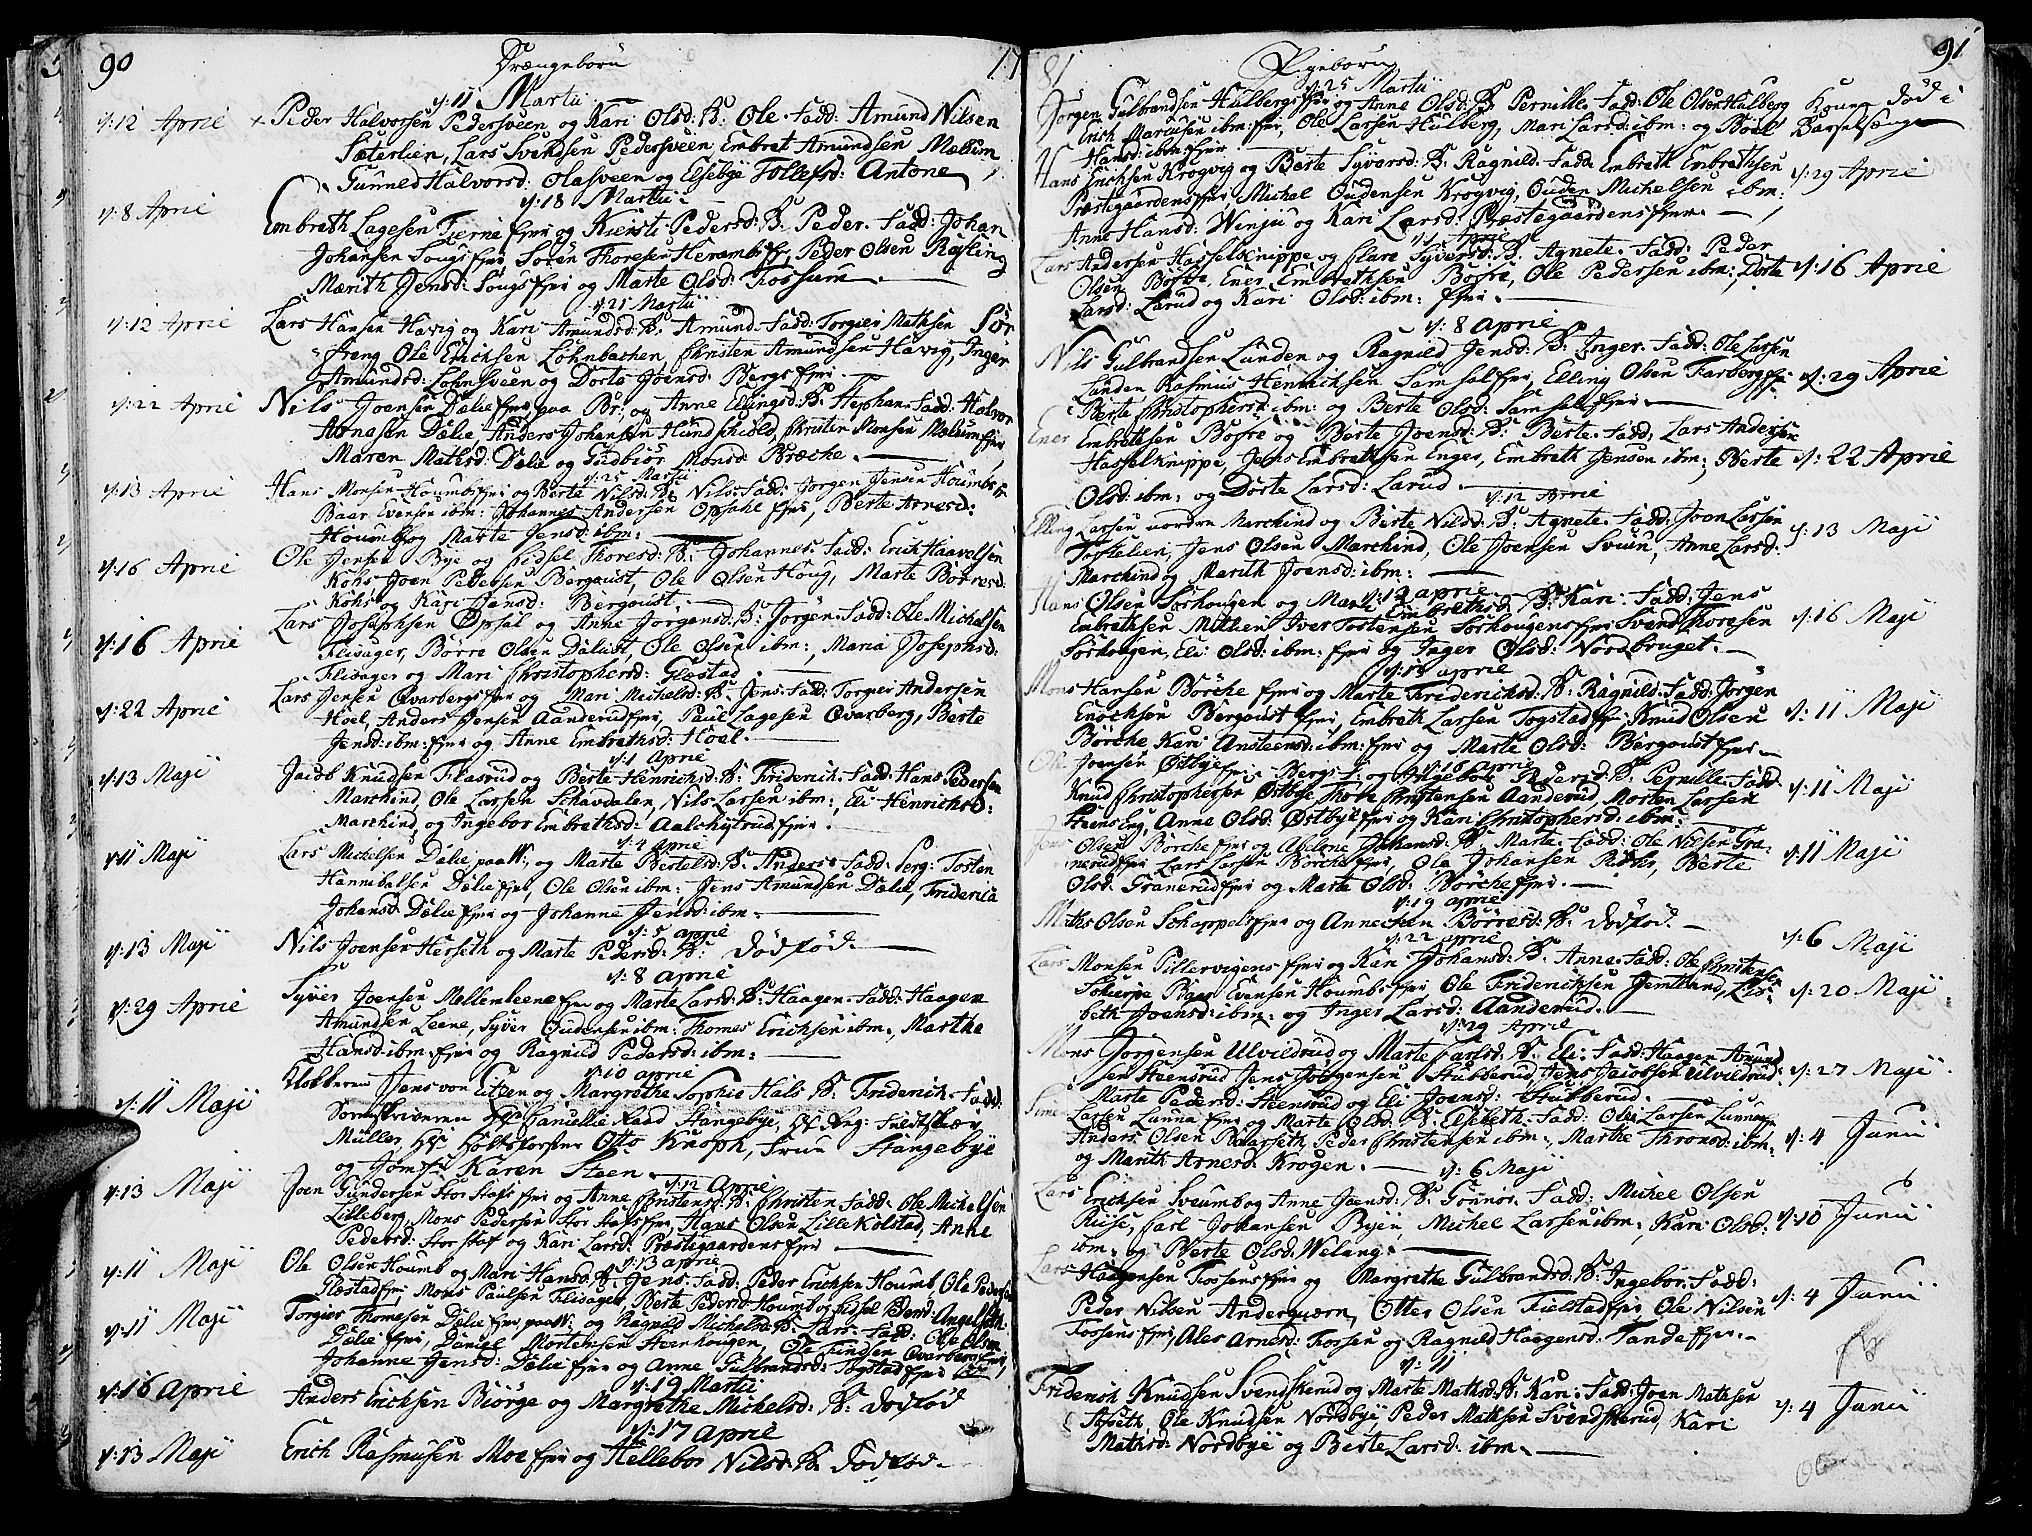 90 Drængebørn 17
d: 11 Martii
d: 12 Aprie + Peder Halvorsen Pedersveen og Kari Olsd: B: Ole. Fadd: Amund Nilsen
Sæterlien, Lars Svendsen Pedersveen, Embret Amundsen Mælum,
Gunned Halvorsd: Olasveen og Elsebye Tollefsd: Antone
d: 18 Martii
d: 8 Aprie Embreth Lagesen Tierne Eyer og Kiersti Pedersd: B: Peder. Fadd: Johan
Johansen Sougs Eyer Sören Thoresen Heramb Ey, Peder Olsen Røfling
Mærith Jensd: Sougs Eyer og Marte Olsd: Fossum
d: 25 Martii
d: 12 Aprie Lars Hansen Havig og Kari Amundsd: B: Amund. Fadd: Torgier Mathsen Sør
Ole Erichsen Lohnbachen, Christen Amundsen Havig, Inger
Amundsd: Lohnsveen og Dorte Joensd: Bergs Eyer.
d: 22 Aprie Nils Joensen Dælie Eyer paa Br: og Anne Ellingsd: B: Stephan. Fadd: Halvor
Arnesen Dælie Anders Johansen Hundschiold, Christen Monsen Mælum Eyer
Maren Mathsd: Dælie og Gudbiør Monsd: Bræche.
d: 25 Martii
d: 13 Aprie Hans Monsen Houmbs Eyer og Berte Nilsd: B: Nils. Fadd: Jørgen Jensen Houmb
Baar Evensen ibm: Johannes Andersen Opsahl Eyer, Berte Arnesd:
Houmb og Marte Jensd: ibm:
d: 16 Aprie Ole Jensen Bye og Sidsel Thoresd: B: Johannes. Fadd: Erich Haavelsen
Kohs Joen Pedersen Bergquist, Ole Olsen Houg, Marte Børresd:
Kohs og Kari Jensd: Bergquist.
d: 16 Aprie Lars Josephsen Opsal og Anne Jørgensd: B: Jørgen. Fadd: Ole Michelsen
Flisager, Børre Olsen Dælist, Ole Olsen ibm:, Maria Josephsd:
Flisager og Mari Christophersd: Glæstad
d: 22 Aprie Lars Jensen Qvarbergs Eyer og Mari Michelsd: B: Jens. Fadd: Torgier Andersen
Hoel, Anders Jensen Aanderud Eyer, Paul Lagesen Qvarberg, Berte
Jensd: ibm: Eyer og Anne Embrethsd: Hoel.
d: 1 Aprie
d: 13 Maji Jacob Knudsen Flasrud og Berte Henrichsd: B: Friderich. Fadd: Hans Pedersen
Marchind, Ole Larsen Schavdalen, Nils Larsen ibm:, Eli Henrichsd:
Marchind og Ingebor Embrethsd: Aalchytrud Eyer.
d: 4 Aprie
d: 11 Maji Lars Michelsen Dælie paa W:, og Marte Bertelsd: B: Anders. Fadd: Serg: Tosten
Hannibalsen Dælie Eyer, Ole Olsen ibm: Jens Amundsen Dælie, Friderica
Johansd: Dælie Eyer og Johanne Jensd: ibm.
d: 5 Aprie
d: 13 Maji Nils Joensen Herseth og Marte Pedersd: B: Dødfød.
d: 8 Aprie
d: 29 Aprie Syver Joensen Mellemleene Eyer og Marte Larsd: B: Haagen. Fadd: Haagen
Amundsen Leene, Syver Oudensen ibm: Thomes Erichsen ibm:, Marthe
Hansd: ibm: Eyer og Ragnild Pedersd: ibm:
d: 10 Aprie
d: 11 Maji Klokkeren Jens von Eitzen og Margrethe Sophie Hals B: Friderich. Fadd:
Sorenskriveren Hr Danielle Raad Stangebye, Hr Reg: Feldtskær
Müller, Hr Holtzførster Otto Knoph, Fruu Stangebye
og Jomfr: Karen Steen.
d: 12 Aprie
d: 13 Maji Joen Gundersen Stor Stafs Eyer og Anne Christensd: B: Christen Fadd: Ole Michelsen
Lilleberg, Mons Pedersen Stor Stafs Eyer, Hans Olsen Lille Kolstad, Anne
Pedersd: Storstaf og Kari Larsd: Præstegaardens Eyer.
d: 13 Aprie
d: 11 Maji Ole Olsen Houmb og Mari Hansd: B: Jens. Fadd: Peder Erichsen Houmb, Ole Pedersen
Glæstad Eyer Mons Paulsen Flisager, Berte Pedersd: Houmb og Sidsel
d: 11 Maji Torgier Thomesen Dælie Eyer paa W: og Ragnild Michelsd: B: Lars. Fadd: Ole Olsen
Dælie Eyer, Daniel Mortensen Steenhougen, Ole Findsen Qvarberg Eyer,
Johanne Jensd: Dælie Eyer og Anne Gulbrandsd: Togstad Eyer
d: 19 Martii
d: 16 Aprie Anders Erichsen Biørge og Margrethe Michelsd: B: Dødfød
d: 17 Aprie
d: 13 Maji Erich Rasmusen Moe Eyer og Hellebor Nilsd: B: Dødfød.
81 Pigebørn 91
d: 25 Martii
Jørgen Gulbrandsen Hulbergs Eyer og Anne Olsd: B: Pernille. Fadd: Ole Olsen Hulberg Kone død i
Erich Mariusen ibm: Eyer, Ole Larsen Hulberg, Mari Larsd: ibm: og Boel Barselsænge
Hansd: ibm: Eyer
Hans Erichsen Krogvig og Berte Syversd: B: Ragnild. Fadd: Embreth Embrethsen d: 29 Aprie
Præstegaardens Eyer Michel Oudensen Krogvig, Ouden Michelsen ibm:
Anne Hansd: Wenju og Kari Larsd: Præstegaardens Eyer.
d: 1 Aprie
Lars Andersen Hasselknippe og Clare Syversd: B: Agnete. Fadd: Peder
Olsen Bofre, Ener Embrethsen Bofre, Ole Pedersen ibm:, Dorte d: 16 Aprie
Larsd: Larud og Kari Olsd: ibm: Eyer.
d: 8 Aprie
Nils Gulbrandsen Lunden og Ragnild Jensd: B: Inger. Fadd: Ole Larsen
Lunden Rasmus Henrichsen Samsal Eyer, Elling Olsen Farberg Eyer d: 29 Aprie
Berte Christophersd: ibm: og Berte Olsd: Samsal Eyer.
Ener Embrethsen Bofre og Berte Joensd: B: Berte. Fadd: Lars Andersen
Hasselknippe, Jens Embrethsen Enger, Embreth Jensen ibm:, Berte d: 22 Aprie
Olsd: ibm: og Dorte Larsd: Larud.
d: 12 Aprie
Elling Larsen nordre Marchind og Berte Nilsd: B: Agnete. Fadd: Joen Larsen
Toftelien, Jens Olsen Marchind, Ole Joensen Sveen, Anne Larsd: d: 13 Maji
Marchind og Marith Joensd: ibm:
d: 12 Aprie
Hans Olsen Sørhougen og Mari Embrethsd: B: Kari. Fadd: Jens
Embrethsen Mitlien Iver Tostensen Sørhougens Eyer Svend Thoresen d: 16 Maji
Sørhougen, Eli Olsd: ibm: Eyer og Inger Olsd: Nordbruget.
d: 13 Aprie
Mons Hansen Børche Eyer og Marte Friderichsd: B: Ragnild. Fadd: Jørgen
Enochsen Bergquist Eyer, Embreth Larsen Togstad Eyer Knud Olsen d: 11 Maji
Børche Kari Ansteensd: ibm: Eyer og Marte Olsd: Bergquist Eyer
d: 16 Aprie
Ole Joensen Østbye Eyer og Ingebor Pedersd: B: Pernille. Fadd:
Knud Christophersen Østbye Thore Christensen Aanderud, Morten Larsen d: 11 Maji
Steens Eng, Anne Olsd: Østbye Eyer og Kari Christophersd: ibm:
Jens Olsen Børche Eyer og Abelone Johansd: B: Marte. Fadd: Ole Nilsen Gra-
nerud Eyer Lars Larsen Børche Eyer, Ole Johansen, Berte d: 11 Maji
Olsd: Granerud Eyer og Marte Olsd: Børche Eyer.
d: 19 Aprie
Maths Olsen Scheppels Eyer og Anne Børresd: B: Dødfød.
d: 22 Aprie d: 6 Maji
Lars Monsen Tillervigens Eyer og Kari Johansd: B: Anne. Fadd: Ole Christensen
Scherpe Baar Evensen Houmbs Eyer Ole Friderichsen Jemtland, Lis- d: 20 Maji
beth Joensd: ibm: og Inger Larsd: Aanderud.
d: 29 Aprie
Mons Jørgensen Ulvildrud og Marte Carlsd: B: Eli. Fadd: Haagen Amund
sen Steensrud Jens Jørgensen Stubberud, Jens Jacobsen Ulvildrud d: 27 Maji
Marte Pedersd: Steensrud og Eli Joensd: Stubberud.
Sime Larsen Lunna Eyer og Marte Olsd: B: Elsebeth. Fadd: Ole Larsen Lunna
Anders Olsen Baarseth Peder Christensen ibm:, Marthe Thronsd: ibm: d: 4 Junii
og Marith Arnesd: Krogen.
d: 6 Maji
Lars Erichsen Sveumb og Anne Joensd: B: Gonnor. Fadd: Michel Olsen
Riise, Carl Johansen Byen, Michel Larsen ibm:, Kari Olsd: d: 10 Junii
ibm: og Berte Olsd: Welang.
Lars Haagensen Fossens Eyer og Margrethe Gulbrandsd: B: Ingebor. Fadd:
Peder Nilsen Anderqværn, Otter Olsen Fielstad Eyer, Ole Nilsen d: 4 Junii
Fossens Eyer, Ales Arnesd: Fossen og Ragnild Haagensd: Tande Eyer.
d: 11
Friderich Knudsen Svendskerud og Marte Mathsd: B: Kari. Fadd: Joen Mathsen
Ole Knudsen Nordbye Peder Mathsen Svendskerud, Kari d: 4 Junii
Mathsd: Nordbye og Berte Larsd: ibm.